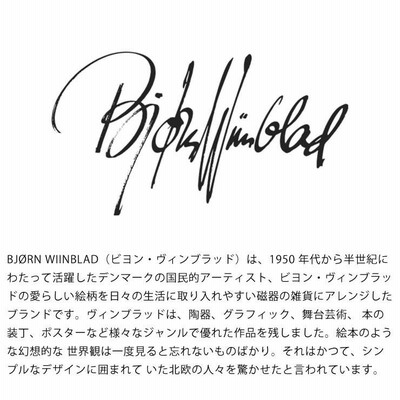 Bjørn Wiinblad
BJØRN WIINBLAD（ビヨン・ヴィンブラッド）は、1950 年代から半世紀に
わたって活躍したデンマークの国民的アーティスト、ビヨン・ヴィンブラッ
ドの愛らしい絵柄を日々の生活に取り入れやすい磁器の雑貨にアレンジした
ブランドです。ヴィンブラッドは、陶器、グラフィック、舞台芸術、 本の
装丁、ポスターなど様々なジャンルで優れた作品を残しました。絵本のよう
な幻想的な 世界観は一度見ると忘れないものばかり。それはかつて、シン
プルなデザインに囲まれて いた北欧の人々を驚かせたと言われています。